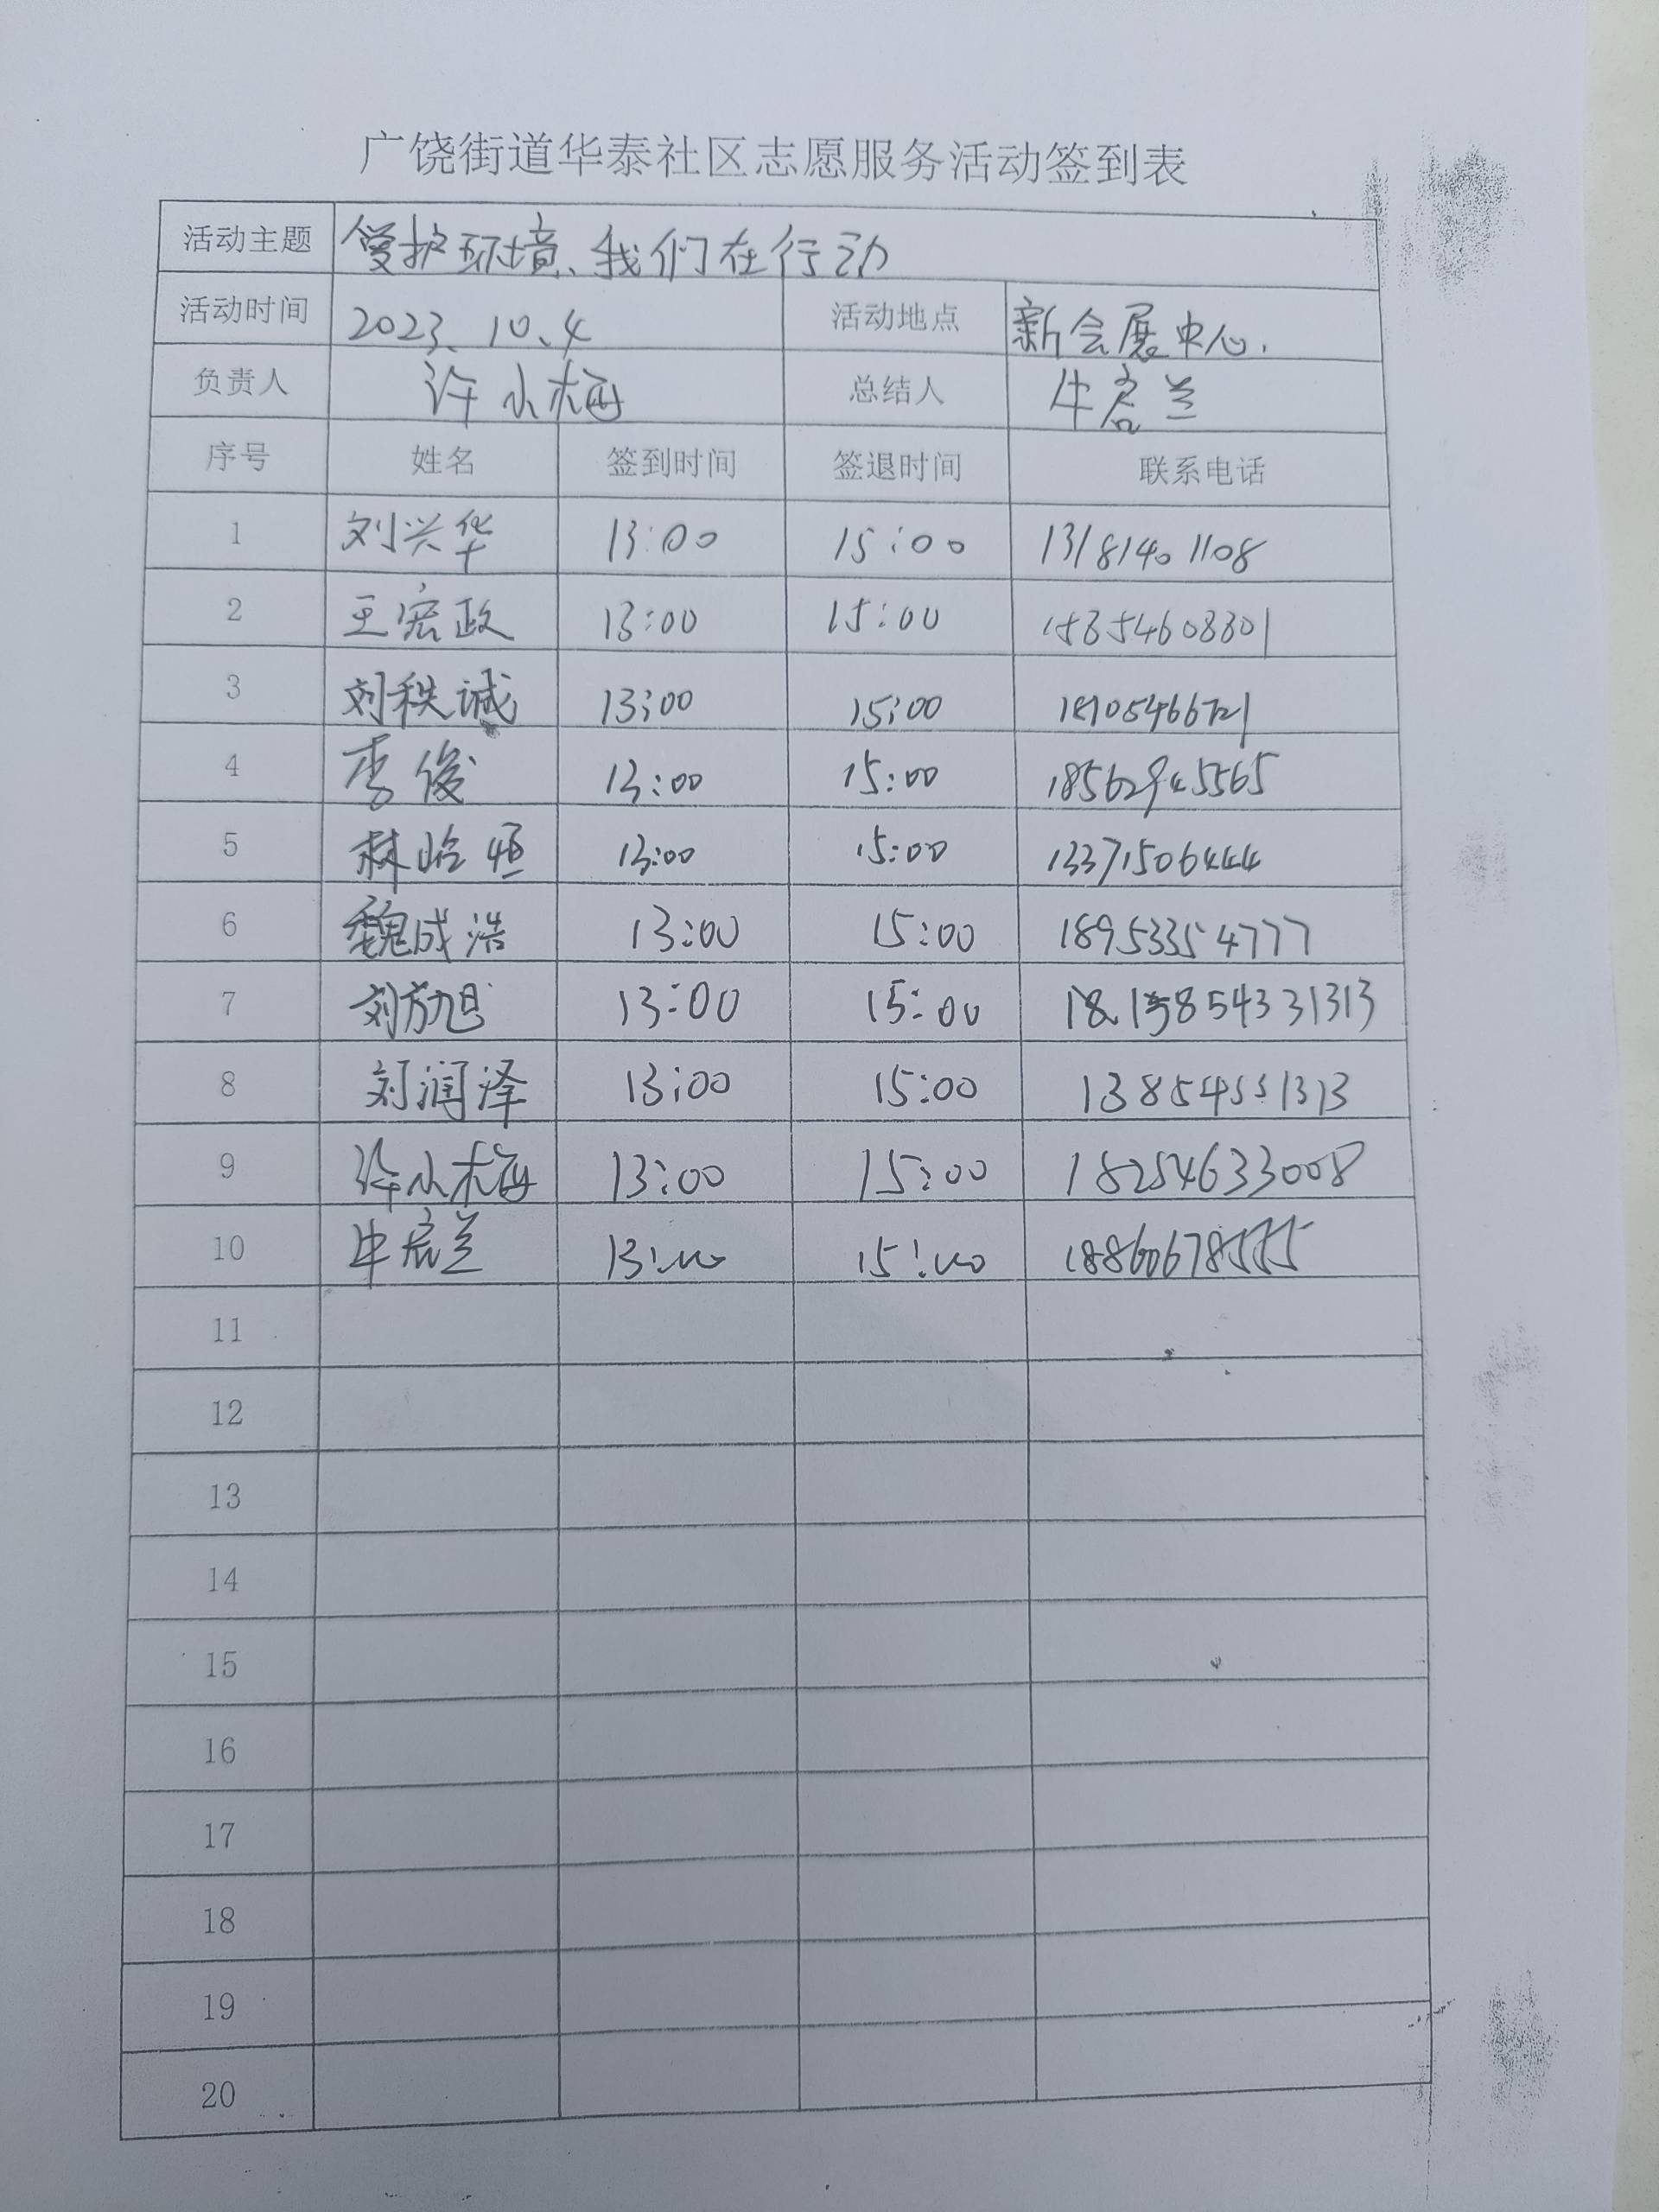 广饶街道华泰社区志愿服务活动签到表
活动主题 爱护环境、我们在行动
活动时间 2023、10、4 活动地点 新会展中心.
负责人 许小梅 总结人 牛启兰
序号 姓名 签到时间 签退时间 联系电话
1 刘兴华 13:00 15:00 13181401108
2 王宏政 13:00 15:00
3 刘秩诚 13:00 15:00
4 李俊 13:00 15:00 18562945565
5 13:00 15:00 13371506444
6 魏成浩 13:00 15:00 18953354777
7 刘方旭 13:00 15:00
8 刘润泽 13:00 15:00
9 许小梅 13:00 15:00 18254633008
10 13:00 15:00 18860678555
11
12
13
14
15
16
17
18
19
20